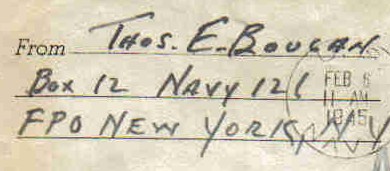 From Thos. E. Bougan
Box 12 Navy 121
FPO New York, N.Y
FEB 6
11 AM
1945
NAVY